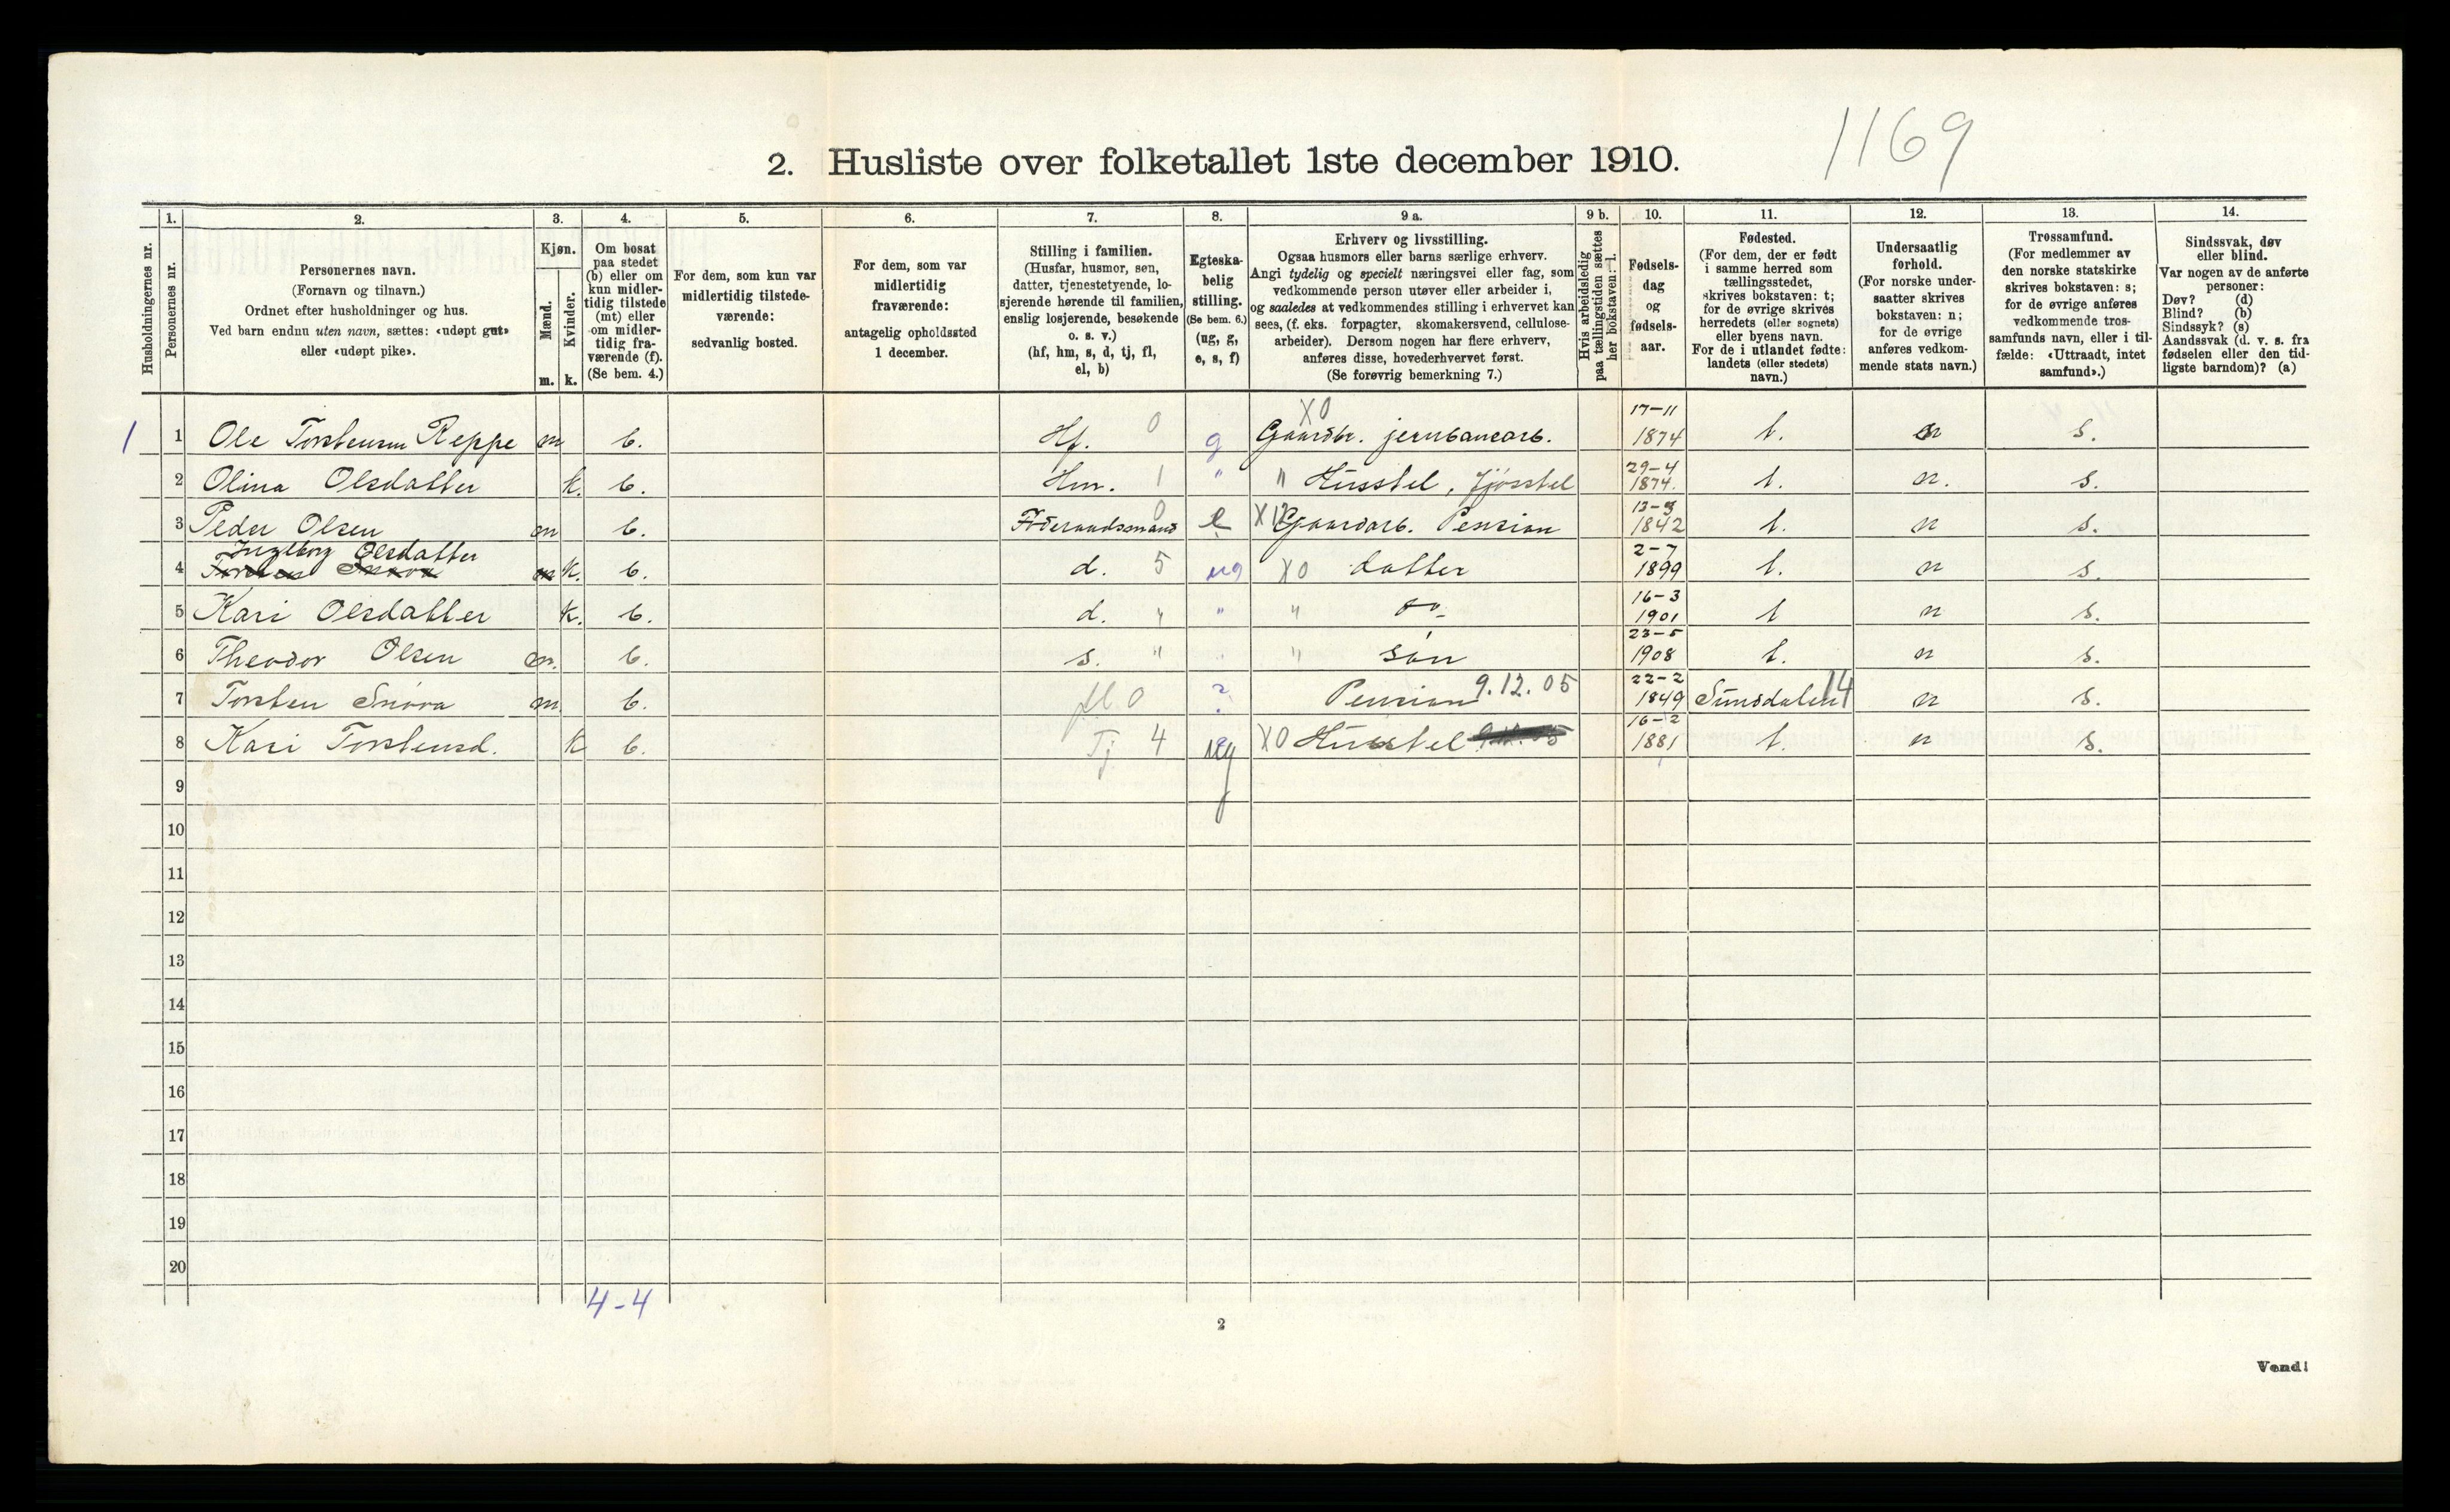 1169
2. Husliste over folketallet 1ste december 1910.
Husholdningernes nr.
1.
Personernes nr.
2.
Personernes navn.
(Fornavn og tilnavn.)
Ordnet efter husholdninger og hus.
Ved barn endnu uten navn, sættes: «udøpt gut»
eller «udøpt pike».
3.
Kjøn.
Mænd.
m.
Kvinder.
k.
4.
Om bosat
paa stedet
(b) eller om
kun midler-
tidig tilstede
(mt) eller
om midler-
tidig fra-
værende (f).
(Se bem. 4.)
5.
For dem, som kun var
midlertidig tilstede-
værende:
sedvanlig bosted.
6.
For dem, som var
midlertidig
fraværende:
antagelig opholdssted
1 december.
7.
Stilling i familien.
(Husfar, husmor, søn,
datter, tjenestetyende, lo-
sjerende hørende til familien,
enslig losjerende, besøkende
o. s. v.)
(hf, hm, s, d, tj, fl,
el, b)
8.
Egteska-
belig
stilling.
(Se bem. 6.)
(ug, g,
e, s, f)
9 a.
Erhverv og livsstilling.
Ogsaa husmors eller barns særlige erhverv.
Angi tydelig og specielt næringsvei eller fag, som
vedkommende person utøver eller arbeider i,
og saaledes at vedkommendes stilling i erhvervet kan
sees, (f. eks. forpagter, skomakersvend, cellulose-
arbeider). Dersom nogen har flere erhverv,
anføres disse, hovederhvervet først.
(Se forøvrig bemerkning 7.)
9 b.
Hvis arbeidsledig
paa tællingstiden sættes
her bokstaven: l.
10.
Fødsels-
dag
og
fødsels-
aar.
11.
Fødested.
(For dem, der er født
i samme herred som
tællingsstedet,
skrives bokstaven: t;
for de øvrige skrives
herredets (eller sognets)
eller byens navn.
For de i utlandet fødte:
landets (eller stedets)
navn.)
12.
Undersaatlig
forhold.
(For norske under-
saatter skrives
bokstaven: n;
for de øvrige
anføres vedkom-
mende stats navn.)
13.
Trossamfund.
(For medlemmer av
den norske statskirke
skrives bokstaven: s;
for de øvrige anføres
vedkommende tros-
samfunds navn, eller i til-
fælde: «Uttraadt, intet
samfund».)
14.
Sindssvak, døv
eller blind.
Var nogen av de anførte
personer:
Døv? (d)
Blind? (b)
Sindssyk? (s)
Aandssvak (d. v. s. fra
fødselen eller den tid-
ligste barndom)? (a)
1 1 Ole Torstensen Reppe m b. Hf. 0 g X0 Gaardbr. jernbanearb. 17-11 1874 t. n s.
2 Olina Olsdatter k. b. Hm. 1 " " Husstel, Fjøsstel 29-4 1874. t. n. s.
3 Peder Olsen m b. Føderaadsmand 0 e Gaardarb. Pension 1842 t. n s.
4 Ingeborg Olsdatter k. b. d. 5 ug X0 datter 2-7 1899 t. n s.
5 Kari Olsdatter k. b. d. " " " 16-3 1901 t n s.
6 Theodor Olsen m. b. s. " " " søn 23-5 1908 t. n s.
7 Torsten Snøva m b. fl 0 ? Pension 9.12.05 22-2 1849 Sunsdalen 14 n s.
8 Kari Torstensd. k b. Tj 4 ug X0 Husstel 16-2 1881 t. n s.
9
10
11
12
13
14
15
16
17
18
19
20
4-4
2
Vend!